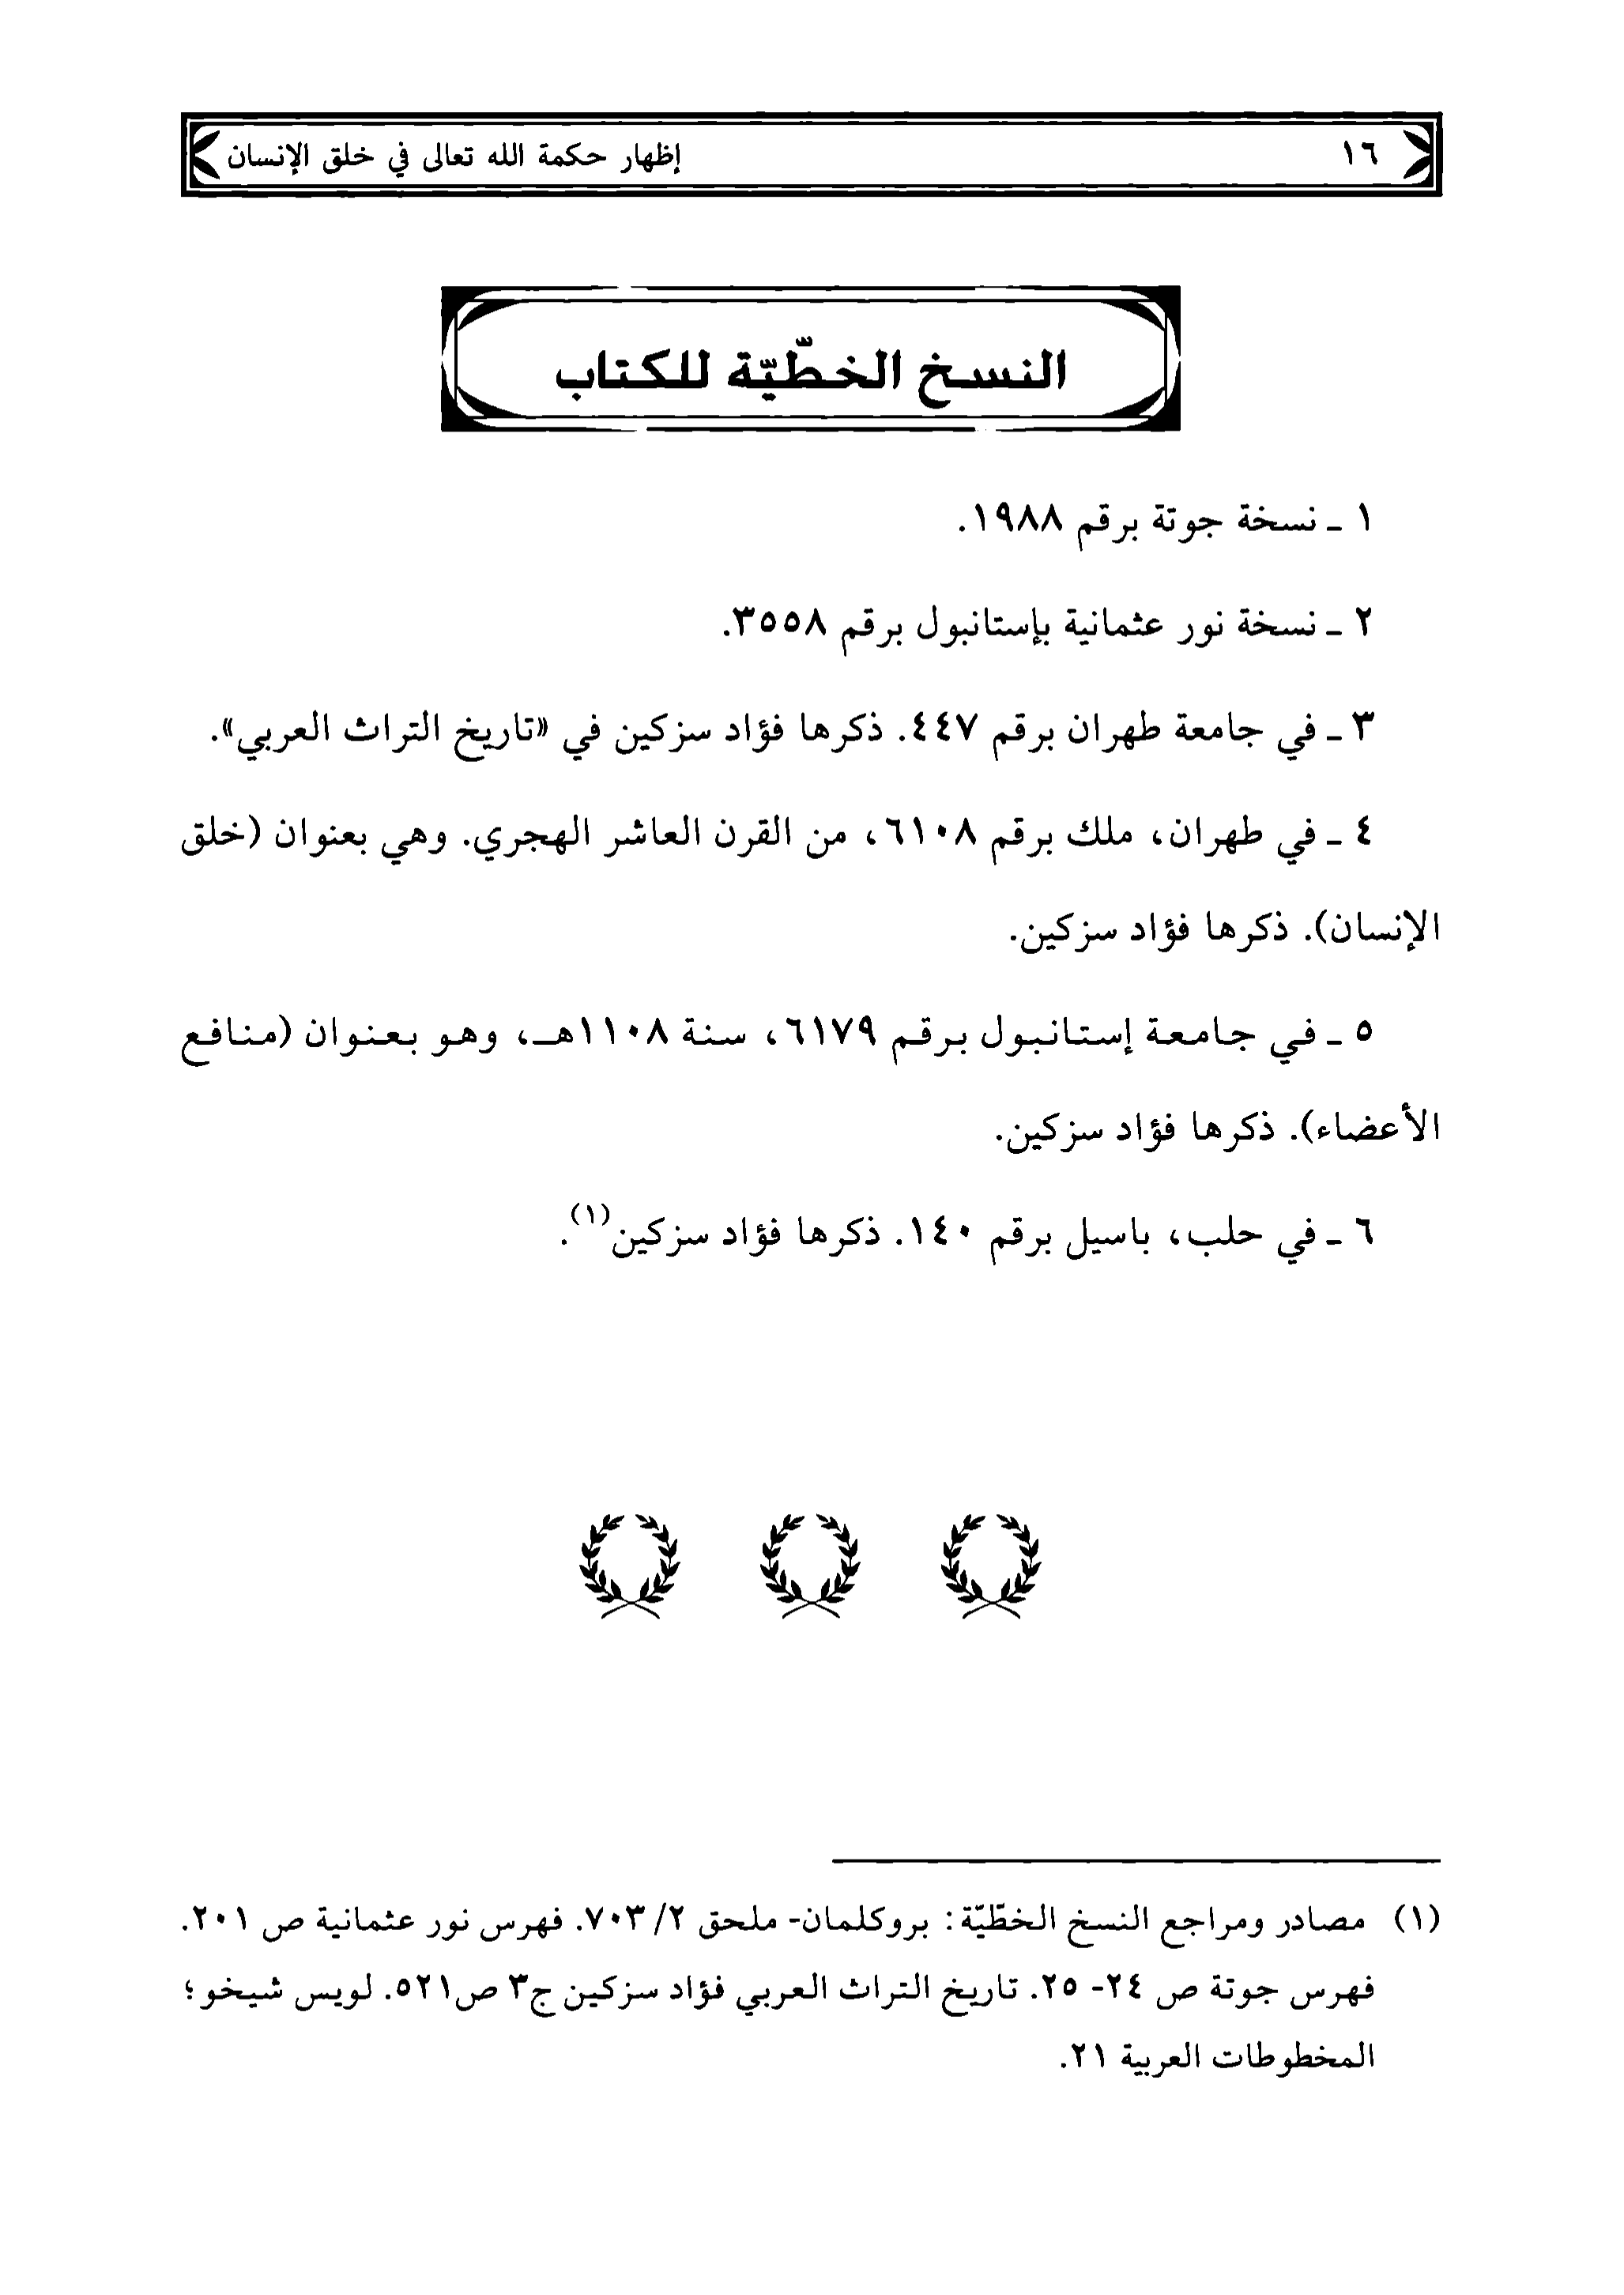 ١٦
إظهار حكمة الله تعالى في خلق الإنسان
النسخ الخطّيّة للكتاب
١ ـ نسخة جوتة برقم ١٩٨٨.
٢ ـ نسخة نور عثمانية بإستانبول برقم ٣٥٥٨.
٣ ـ في جامعة طهران برقم ٤٤٧. ذكرها فؤاد سزكين في «تاريخ التراث العربي».
٤ ـ في طهران، ملك برقم ٦١٠٨، من القرن العاشر الهجري. وهي بعنوان (خلق
الإنسان). ذكرها فؤاد سزكين.
٥ ـ في جامعة إستانبول برقم ٦١٧٩، سنة ١١٠٨هـ، وهو بعنوان (منافع
الأعضاء). ذكرها فؤاد سزكين.
٦ ـ في حلب، باسيل برقم ١٤٠. ذكرها فؤاد سزكين(١).
(١) مصادر ومراجع النسخ الخطّيّة: بروكلمان- ملحق ٢/ ٧٠٣. فهرس نور عثمانية ص ٢٠١.
فهرس جوتة ص ٢٤- ٢٥. تاريخ التراث العربي فؤاد سزكين ج٣ ص٥٢١. لويس شيخو؛
المخطوطات العربية ٢١.